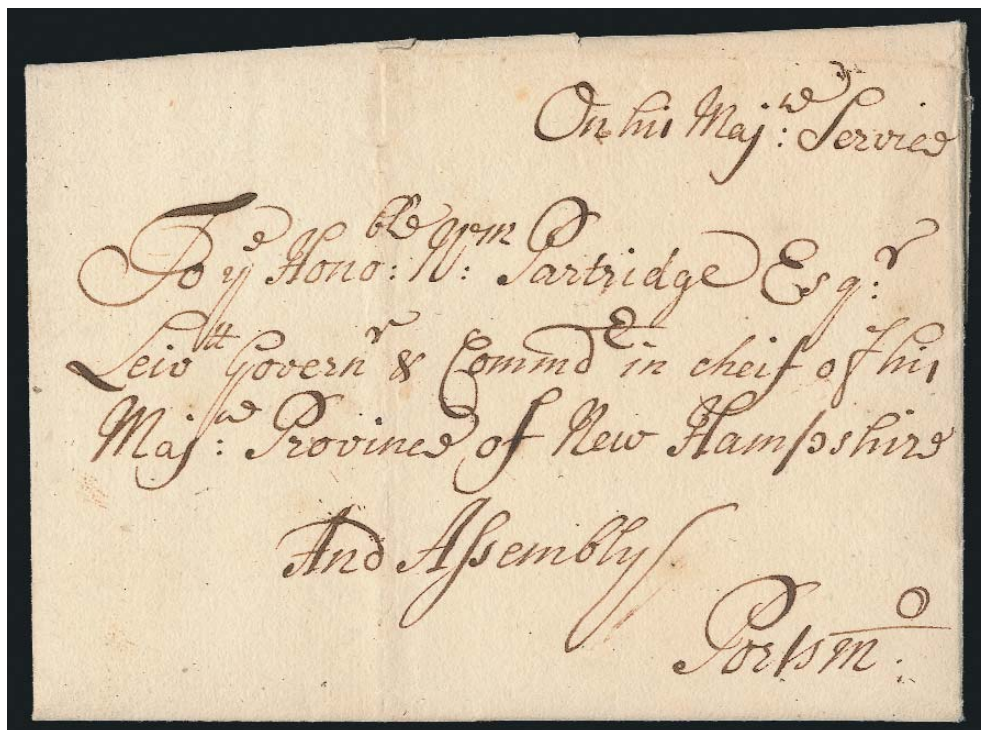 On his Maj:tie Service
To ye Hono:ble Wm: Partridge Esq:r
Leivtt Governr & Commdr in cheif of his
Maj:tie Province of New Hampshire
And Assembly
Portsmo: